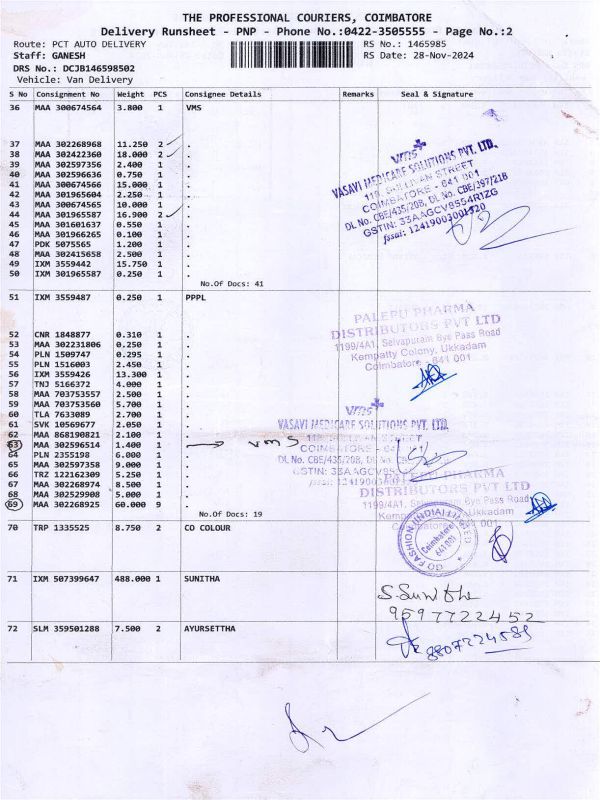 THE PROFESSIONAL COURIERS, COIMBATORE
Delivery Runsheet - PNP - Phone No.:0422-3505555 - Page No.:2
Route: PCT AUTO DELIVERY RS No.: 1465985
Staff: GANESH RS Date: 28-Nov-2024
DRS No.: DCJB146598502
Vehicle: Van Delivery
S No Consignment No Weight PCS Consignee Details Remarks Seal & Signature
36 MAA 300674564 3.800 1 VMS
37 MAA 302268968 11.250 2 .
38 MAA 302422360 18.000 2 .
39 MAA 302597356 2.400 1 .
40 MAA 302596636 0.750 1 .
41 MAA 300674566 15.000 1 .
42 MAA 301965604 2.250 1 .
43 MAA 300674565 10.000 1 .
44 MAA 301965587 16.900 2 .
45 MAA 301601637 0.550 1 .
46 MAA 301966265 0.100 1 .
47 PDK 5075565 1.200 1 .
48 MAA 302415658 2.500 1 .
49 IXM 3559442 15.750 1 .
50 IXM 301965587 0.250 1 .
No.Of Docs: 41
vms
VASAVI MEDICARE SOLUTIONS PVT. LTD.
119, SULLIVAN STREET
COIMBATORE - 641 001
DL No. CBE/435/20B, DL No. CBE/397/21B
GSTIN: 33AAGCV9554R1ZG
fssai: 12419003001520
51 IXM 3559487 0.250 1 PPPL
52 CNR 1848877 0.310 1 .
53 MAA 302231806 0.250 1 .
54 PLN 1509747 0.295 1 .
55 PLN 1516003 2.450 1 .
56 IXM 3559426 13.300 1 .
57 TNJ 5166372 4.000 1 .
58 MAA 703757553 2.500 1 .
59 MAA 703753560 5.700 1 .
60 TLA 7633089 2.700 1 .
61 SVK 10569677 2.050 1 .
62 MAA 868190821 2.100 1 .
63 MAA 302596514 1.400 1 . VMS
64 PLN 2355198 6.000 1 .
65 MAA 302597358 9.000 1 .
66 TRZ 122162309 5.250 1 .
67 MAA 302268974 8.500 1 .
68 MAA 302529908 5.000 1 .
69 MAA 302268925 60.000 9 .
No.Of Docs: 19
PALEPU PHARMA
DISTRIBUTORS PVT LTD
1199/4A1, Selvapuram Bye Pass Road
Kempatty Colony, Ukkadam
Coimbatore - 641 001
vms
VASAVI MEDICARE SOLUTIONS PVT. LTD.
COIMBATORE
DL No. CBE/435/20B, DL No.
PHARMA
DISTRIBUTORS PVT LTD
1199/4A1, Bye Pass Road
Ukkadam
Coimbatore 641 001
70 TRP 1335525 8.750 2 CO COLOUR
GO FASHION (INDIA) LIMITED
Coimbatore
641 001
71 IXM 507399647 488.000 1 SUNITHA
9597722452
72 SLM 359501288 7.500 2 AYURSETTHA
8807224585